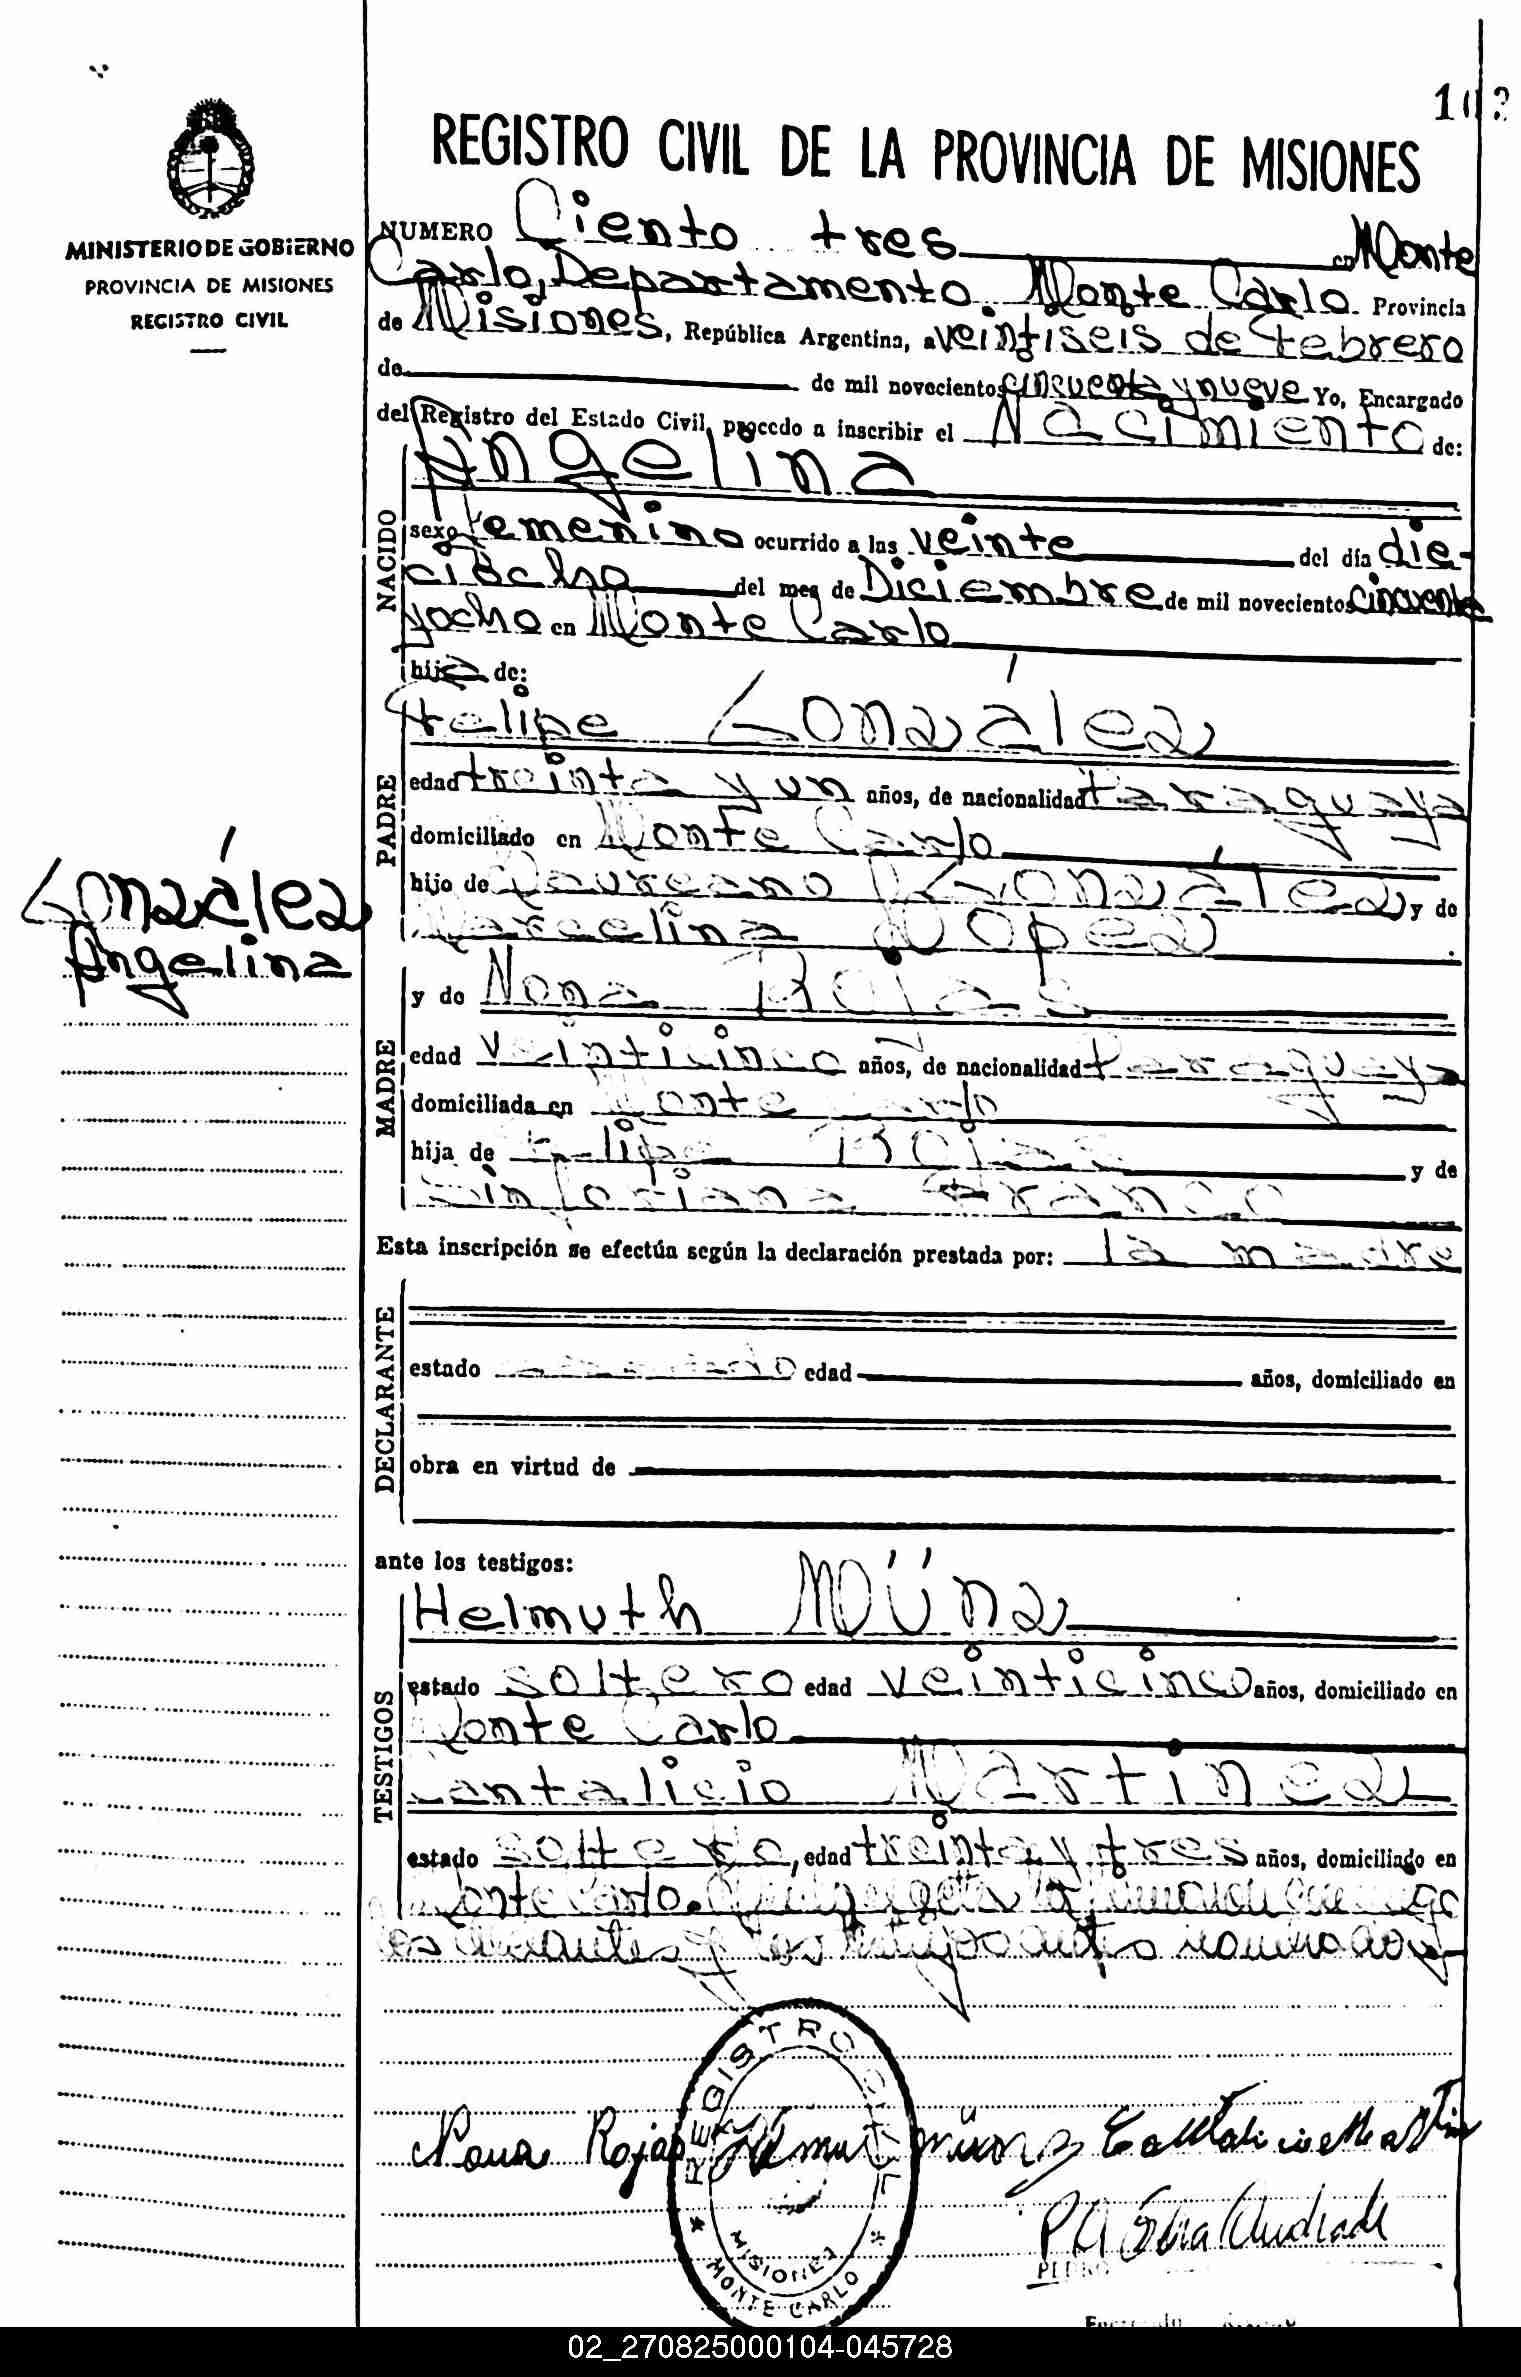 103
MINISTERIO DE GOBIERNO
PROVINCIA DE MISIONES
REGISTRO CIVIL
REGISTRO CIVIL DE LA PROVINCIA DE MISIONES
NUMERO Ciento tres en Monte
Carlo, Departamento Monte Carlo Provincia
de Misiones, República Argentina, a veintiseis de Febrero
de de mil novecientos cincuenta y nueve Yo, Encargado
del Registro del Estado Civil, procedo a inscribir el Nacimiento de:
NACIDO
Angelina
sexo femenino ocurrido a las veinte del día die-
ciocho del mes de Diciembre de mil novecientos cincuenta
y ocho en Monte Carlo
hija de:
PADRE
Felipe González
edad treinta y un años, de nacionalidad Paraguaya
domiciliado en Monte Carlo
hijo de Laureano González y de
Marcelina López
González
Angelina
MADRE
y de Nona Rojas
edad veinticinco años, de nacionalidad Paraguaya
domiciliada en Monte Carlo
hija de Felipe Rojas y de
Sinforiana Franco
Esta inscripción se efectúa según la declaración prestada por: la madre
DECLARANTE
estado edad años, domiciliado en
obra en virtud de
ante los testigos:
TESTIGOS
Helmuth Münz
estado soltero edad veinticinco años, domiciliado en
Monte Carlo
Cantalicio Martinez
estado soltero, edad treinta y tres años, domiciliado en
Monte Carlo. acta la firmaron conmigo
los y los testigos antes nombrados
Nona Rojas Helmut Münz Cantalicio Martin
REGISTRO CIVIL
MISIONES
* MONTE CARLO *
Andrade
PEDRO
02_270825000104-045728